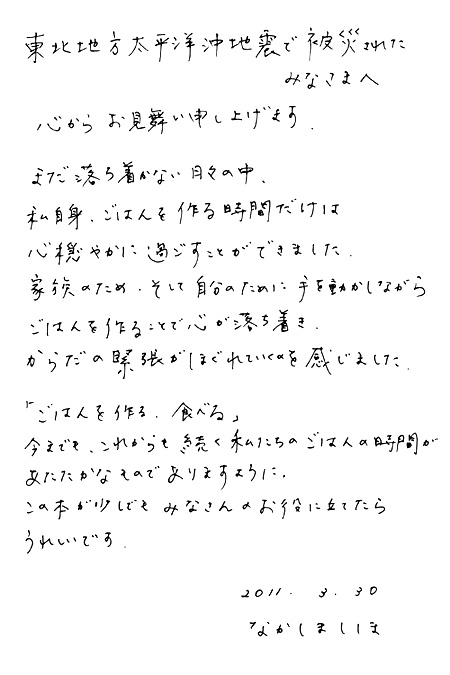 東北地方太平洋沖地震で被災された
みなさまへ
心からお見舞い申し上げます.
まだ落ち着かない日々の中、
私自身、ごはんを作る時間だけは
心穏やかに過ごすことができました.
家族のため、そして自分のために手を動かしながら
ごはんを作ることで心が落ち着き、
からだの緊張がほぐれていくのを感じました.
「ごはんを作る、食べる」
今までも、これからも続く私たちのごはんの時間が
あたたかなものでありますように.
この本が少しでもみなさんのお役に立てたら
うれしいです.
2011. 3. 30
なかしましほ